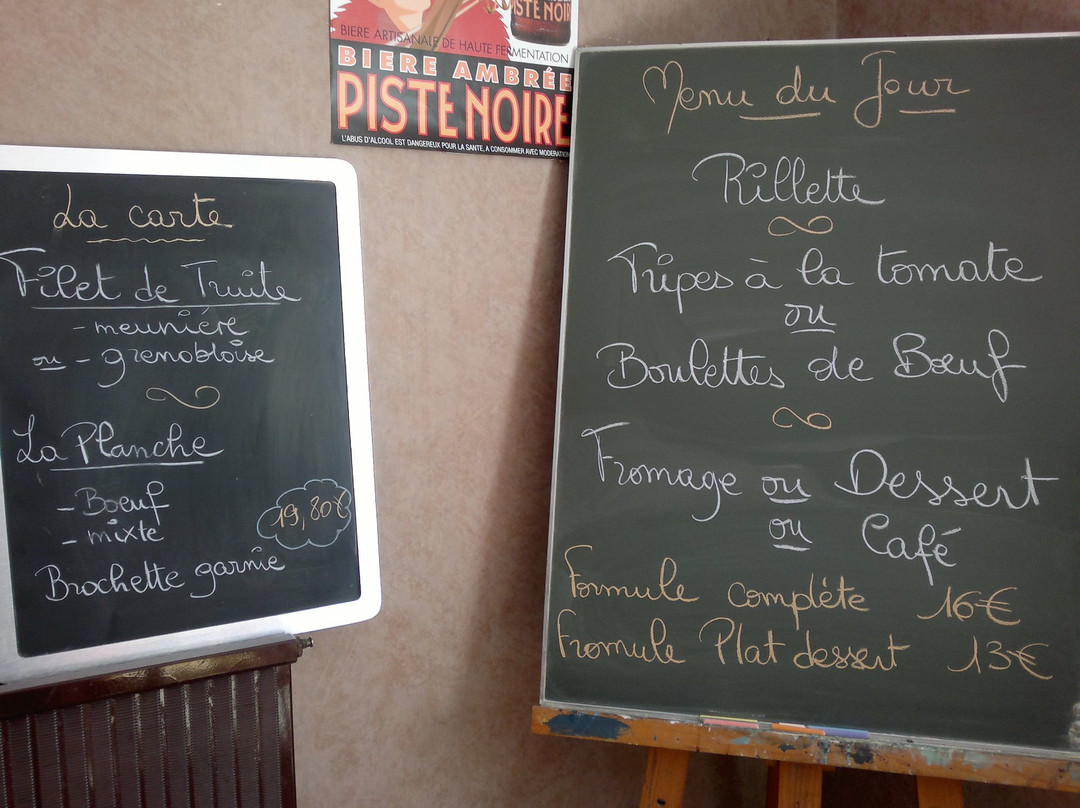 BIERE ARTISANALE DE HAUTE FERMENTATION
BIERE AMBRÉE
PISTE NOIRE
L'ABUS D'ALCOOL EST DANGEREUX POUR LA SANTE, A CONSOMMER AVEC MODERATION
La carte
Filet de Truite
- meuniére
ou - grenobloise
La Planche
- Boeuf
- mixte
19,80€
Brochette garnie
Menu du Jour
Rillette
Tripes à la tomate
ou
Boulettes de Bœuf
Fromage ou Dessert
ou Café
Formule compléte 16€
Fromule Plat dessert 13€